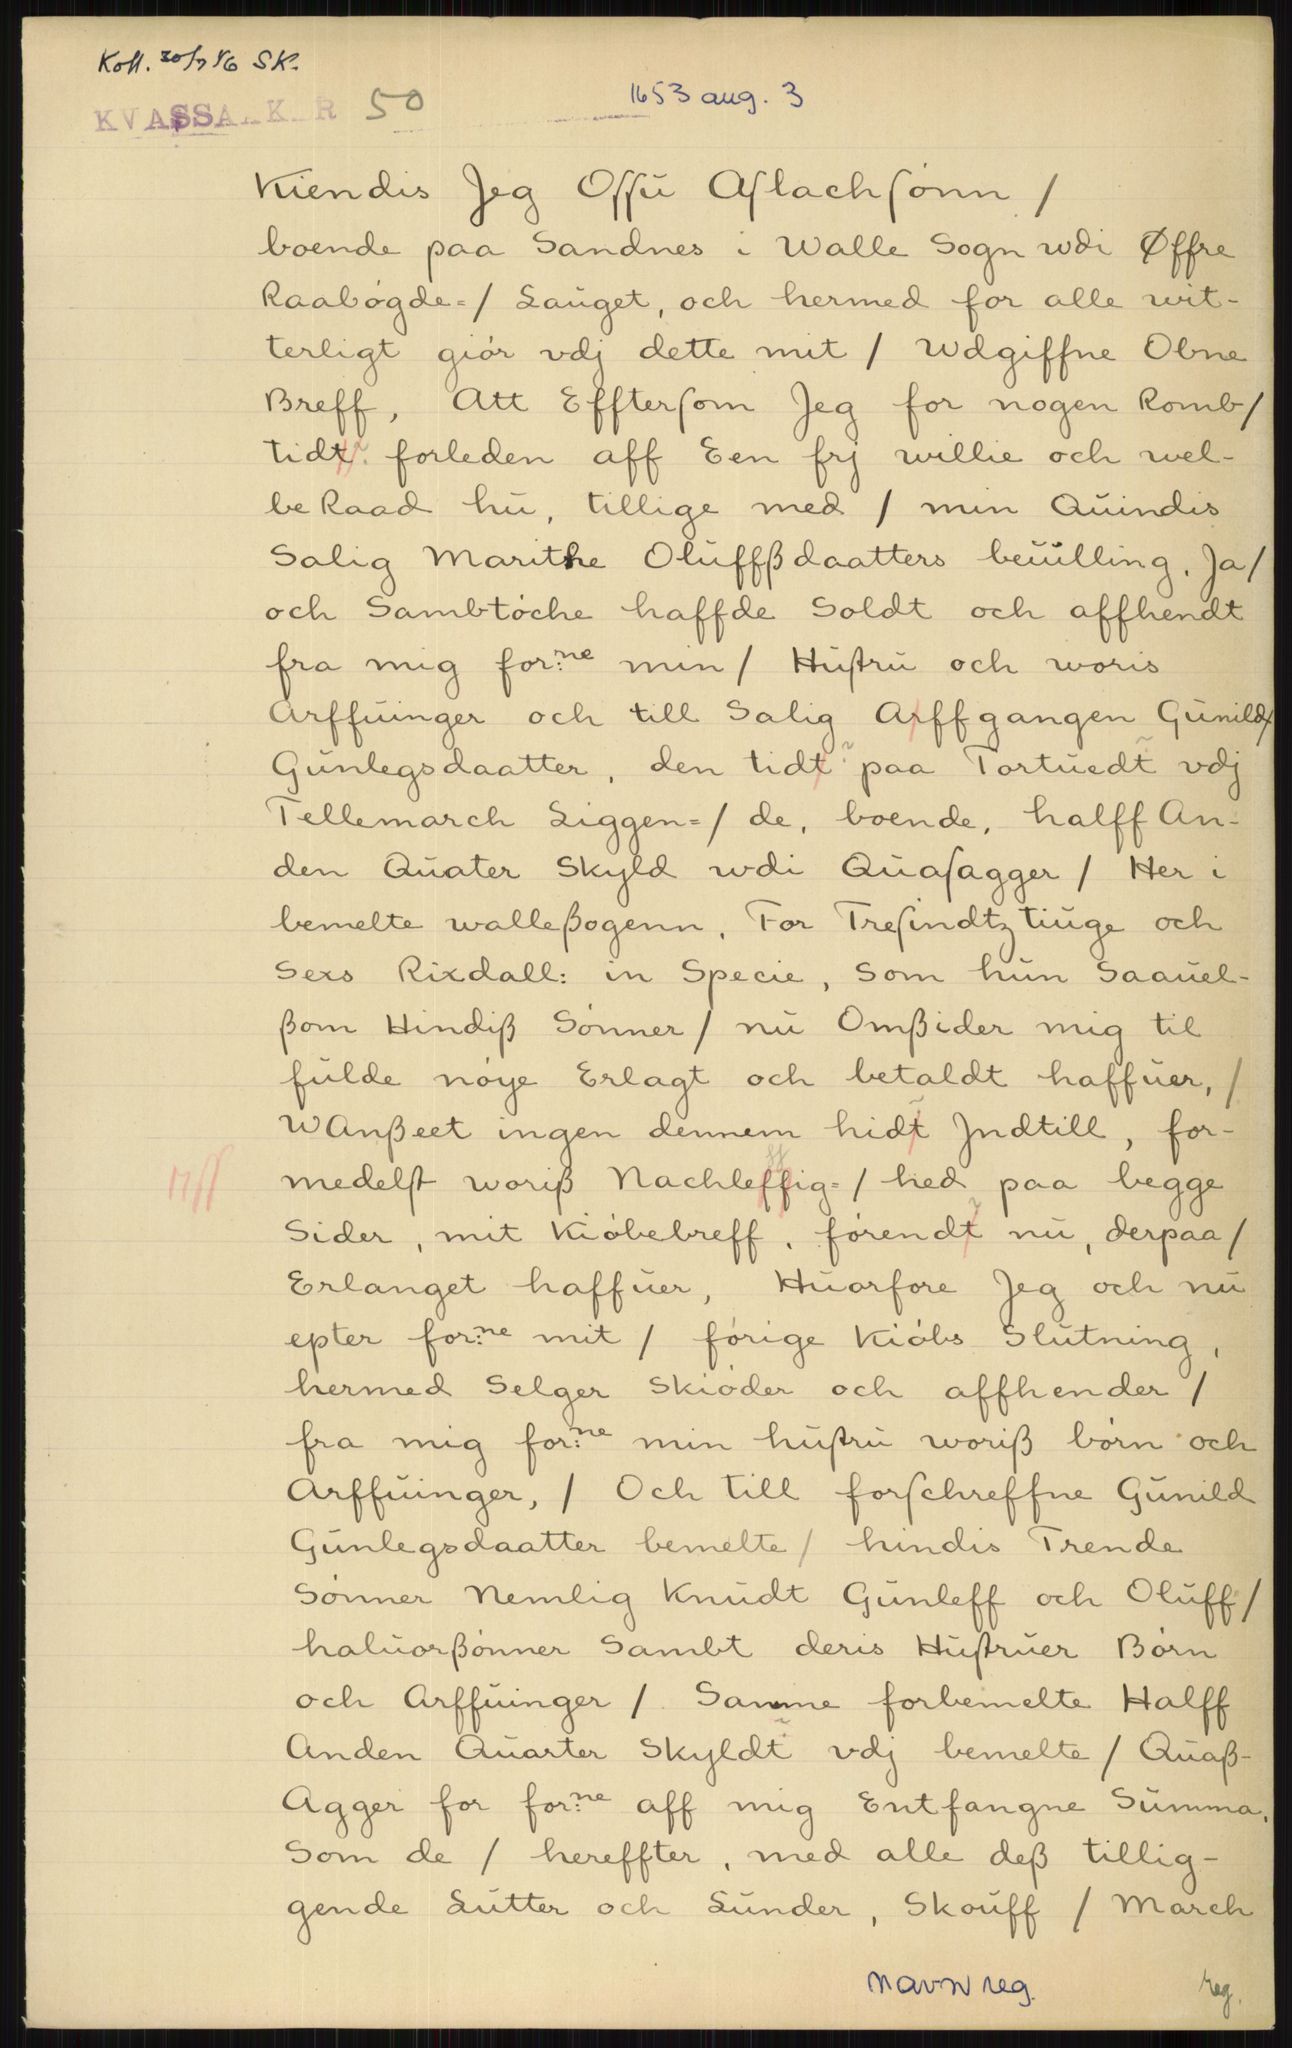 Koll. 30/7 56 SK.
KVASSAKR 50
1653 aug. 3
Kiendis Jeg Ossu Aslachsónn /
boende paa Sandnes i Walle Sogn wdi Øffre
Raabógde=/ Lauget, och hermed for alle wit-
terligt giór vdj dette mit / Wdgiffne Obne
Breff, Att Efftersom Jeg for nogen Romb/
tidt forleden aff Een frj willie och wel-
be Raad hu, tillige med / min Quindis
Salig Marithe Oluffßdaatters beuulling, Ja/
och Sambtóche haffde Soldt och affhendt
fra mig for:ne min / Hustru och woris
Arffuinger och till Salig Arffgangen Gunild/
Gunlegsdaatter, den tidt paa Tortuedt vdj
Tellemarch Liggen=/ de, boende, halff An-
den Quater Skyld wdi Quasagger / Her i
bemelte walleßogenn, For Tresindtz tiuge och
Sexs Rixdall: in Specie, Som hun Saauel-
ßom Hindiß Sónner / nu Omßider mig til
fulde nóye Erlagt och betaldt haffuer, /
WAnßeet ingen dennem hidt Jndtill, for-
medelst woriß Nachleffig=/ hed paa begge
ff
Sider, mit Kióbebreff, fórendt nu, derpaa /
Erlanget haffuer, Huorfore Jeg och nu
epter for:ne mit / fórige Kióbs Slutning,
hermed Selger Skióder och affhender /
fra mig for:ne min hustru woriß bórn och
Arffuinger, / Och till forschreffne Gunild
Gunlegsdaatter bemelte / hindis Trende
Sónner Nemlig Knudt Gunleff och Oluff /
haluorßónner Sambt deris Hustruer Bórn
och Arffuinger / Samme forbemelte Halff
Anden Quarter Skyldt vdj bemelte / Quaß-
Agger for for:ne aff mig Entfangne Summa,
Som de / hereffter, med alle deß tillig-
gende Lutter och Lunder, Skouff / March
Navn reg.
reg.